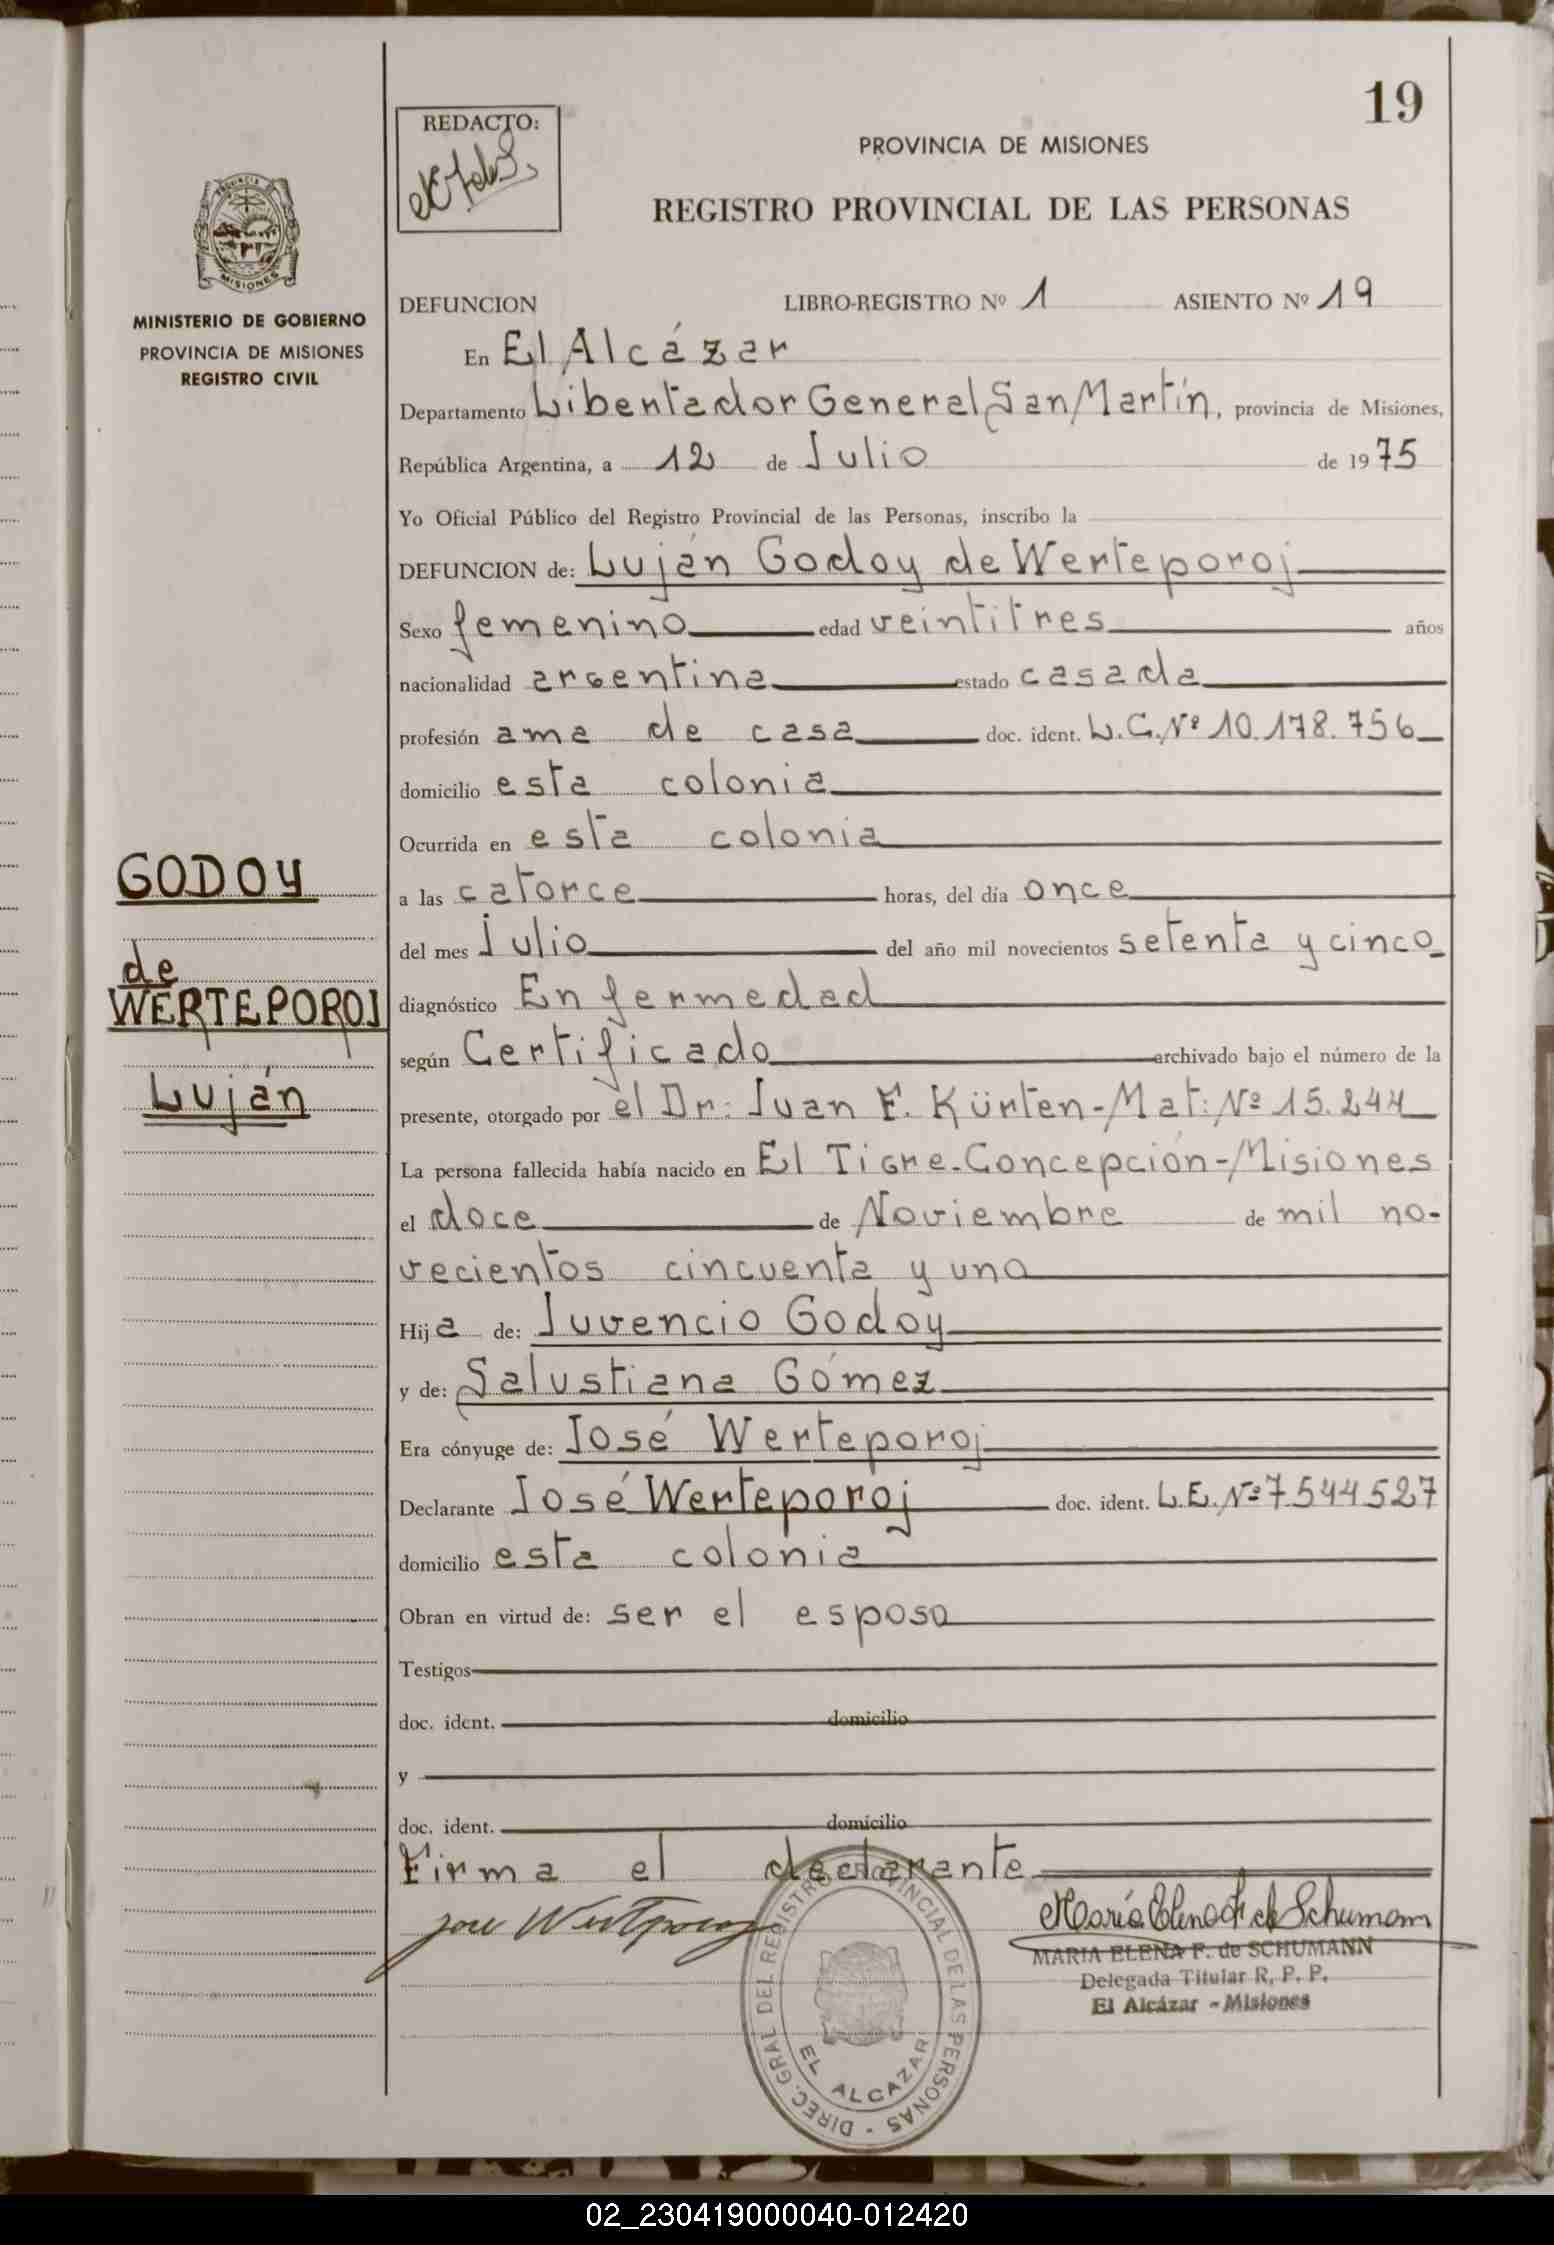 19
REDACTO:
PROVINCIA DE MISIONES
REGISTRO PROVINCIAL DE LAS PERSONAS
MINISTERIO DE GOBIERNO
PROVINCIA DE MISIONES
REGISTRO CIVIL
DEFUNCION LIBRO-REGISTRO Nº 1 ASIENTO Nº 19
En El Alcázar
Departamento Libertador General San Martín, provincia de Misiones,
República Argentina, a 12 de Julio de 1975
Yo Oficial Público del Registro Provincial de las Personas, inscribo la
DEFUNCION de: Luján Godoy de Werteporoj
Sexo femenino edad veintitres años
nacionalidad argentina estado casada
profesión ama de casa doc. ident. L.C. Nº 10.178.756
domicilio esta colonia
Ocurrida en esta colonia
a las catorce horas, del día once
del mes Julio del año mil novecientos setenta y cinco
diagnóstico Enfermedad
según Certificado archivado bajo el número de la
presente, otorgado por el Dr. Juan F. Kürten - Mat: Nº 15.244
La persona fallecida había nacido en El Tigre - Concepción - Misiones
el doce de Noviembre de mil no-
vecientos cincuenta y uno
Hija de: Juvencio Godoy
y de: Salustiana Gómez
Era cónyuge de: José Werteporoj
Declarante José Werteporoj doc. ident. L.E. Nº 7544527
domicilio esta colonia
Obran en virtud de: ser el esposo
Testigos
doc. ident. domicilio
y
doc. ident. domicilio
Firma el declarante
GODOY
de
WERTEPOROJ
Luján
José Werteporoj
María Elena F. de Schumann
MARIA ELENA F. de SCHUMANN
Delegada Titular R. P. P.
El Alcázar - Misiones
DIREC. GRAL DEL REGISTRO PROVINCIAL DE LAS PERSONAS -
EL ALCAZAR
MISIONES
02_230419000040-012420